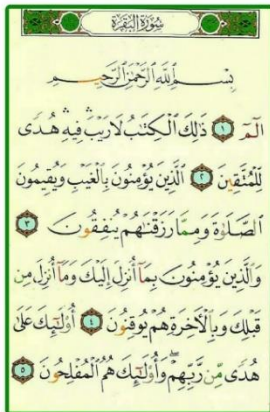 سُورَةُ البَقَرَةِ
بِسْمِ ٱللَّهِ ٱلرَّحْمَٰنِ ٱلرَّحِيمِ
الٓمٓ ١ ذَٰلِكَ ٱلْكِتَٰبُ لَا رَيْبَ ۛ فِيهِ ۛ هُدًى
لِّلْمُتَّقِينَ ٢ ٱلَّذِينَ يُؤْمِنُونَ بِٱلْغَيْبِ وَيُقِيمُونَ
ٱلصَّلَوٰةَ وَمِمَّا رَزَقْنَٰهُمْ يُنفِقُونَ ٣
وَٱلَّذِينَ يُؤْمِنُونَ بِمَآ أُنزِلَ إِلَيْكَ وَمَآ أُنزِلَ مِن
قَبْلِكَ وَبِٱلْأَخِرَةِ هُمْ يُوقِنُونَ ٤ أُو۟لَٰٓئِكَ عَلَىٰ
هُدًى مِّن رَّبِّهِمْ ۖ وَأُو۟لَٰٓئِكَ هُمُ ٱلْمُفْلِحُونَ ٥